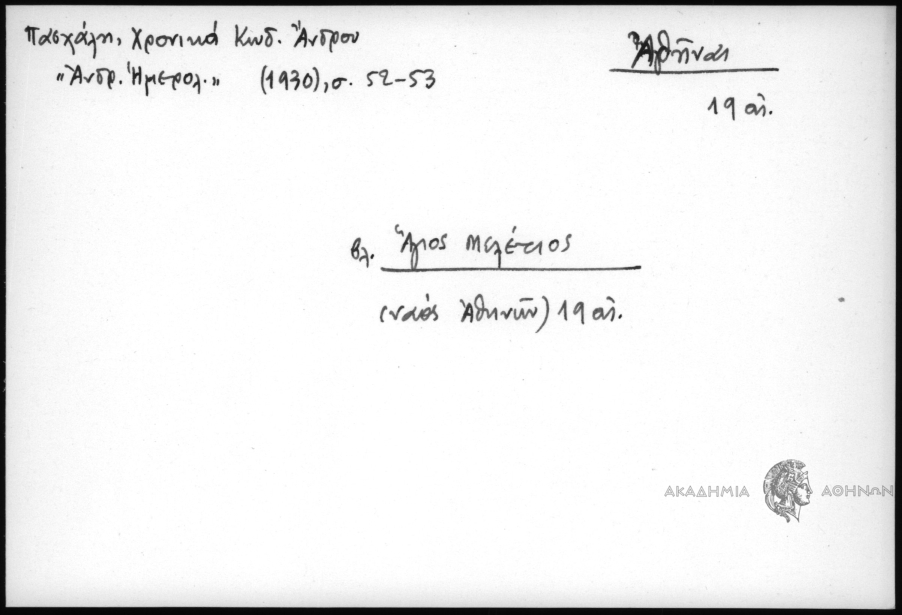 Πασχάλη, Χρονικά Κωδ. Ἄνδρου
„Ἀνδρ. Ἡμερολ.„ (1930), σ. 52-53
Ἀθῆναι
19 αἰ.
βλ. Ἅγιος Μελέτιος
(ναός Ἀθηνῶν) 19 αἰ.
ΑΚΑΔΗΜΙΑ ΑΘΗΝΩΝ